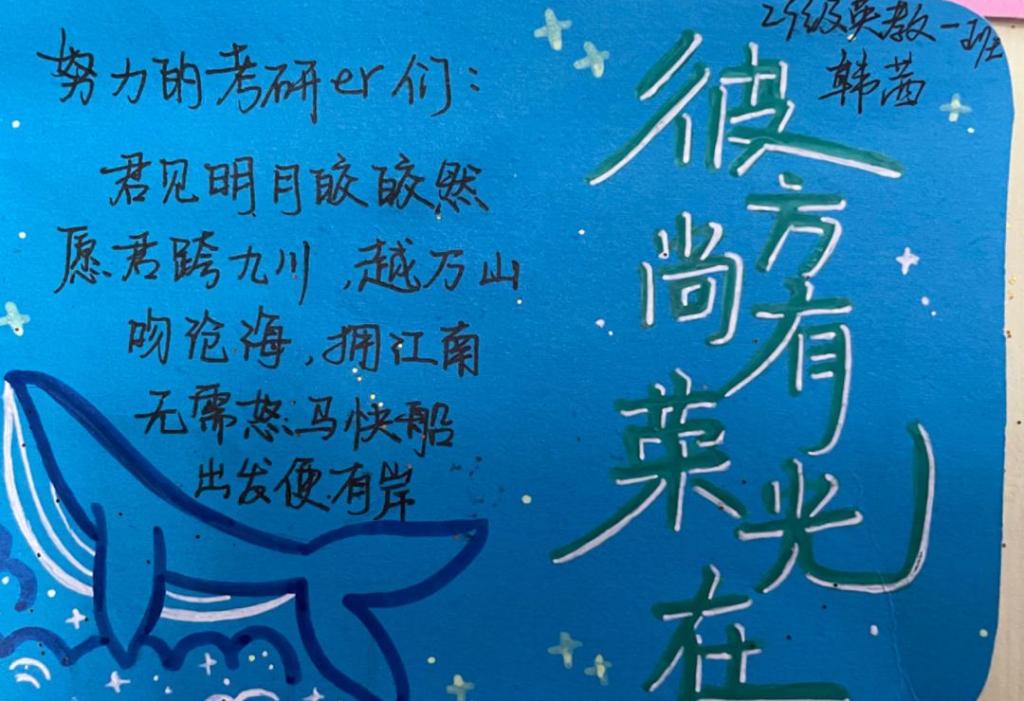 21级英教一班
韩茜
努力的考研er们：
君见明月皎皎然
愿君跨九川，越万山
吻沧海，拥江南
无需怒马快船
出发便有岸
彼方尚有荣光在